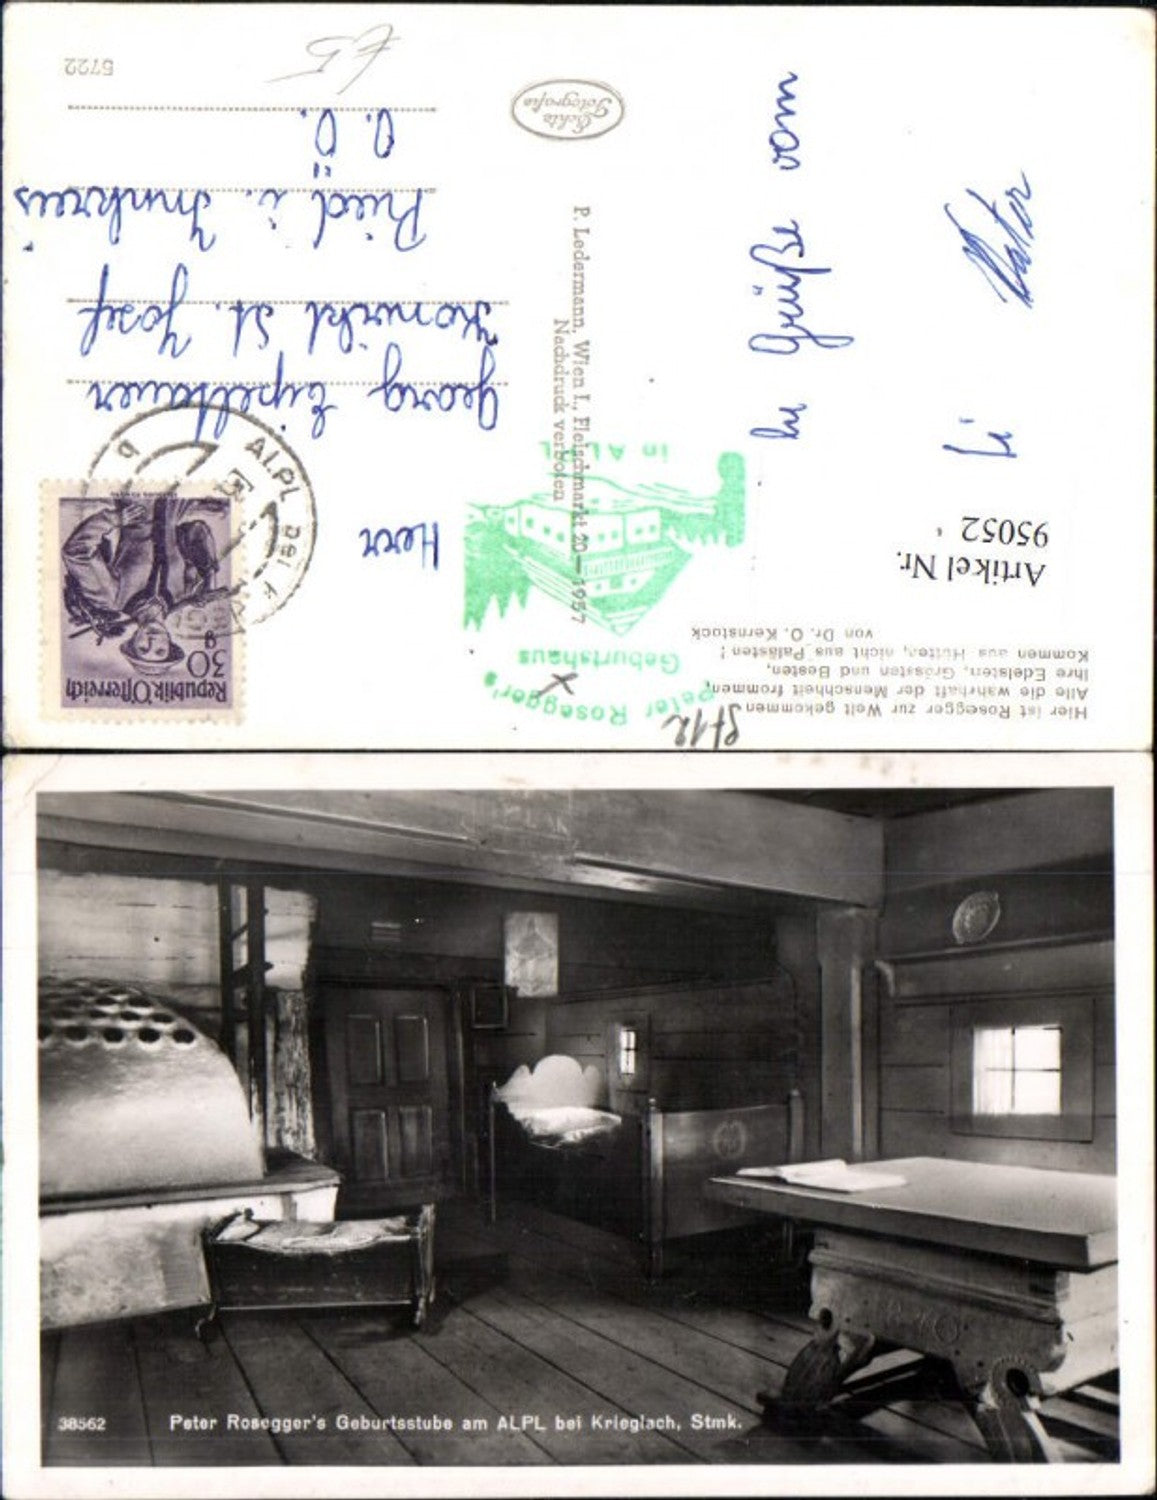 Hier ist Rosegger zur Welt gekommen
Alle die wahrhaft der Menschheit frommen,
Ihre Edelsten, Grössten und Besten,
Kommen aus Hütten, nicht aus Palästen!
von Dr. O. Kernstock
Artikel Nr.
95052
Li
Vater
Grüße vom
Peter Rosegger's
Geburtshaus
in ALPL
P. Ledermann, Wien I., Fleischmarkt 20—1957
Nachdruck verboten
Echte
Fotografie
Republik Österreich
30 g
ALPL bei K
Herr
Georg Eipeltauer
Konvikt St. Josef
Ried i. Innkreis
O. Ö.
5722
38562 Peter Rosegger's Geburtsstube am ALPL bei Krieglach, Stmk.